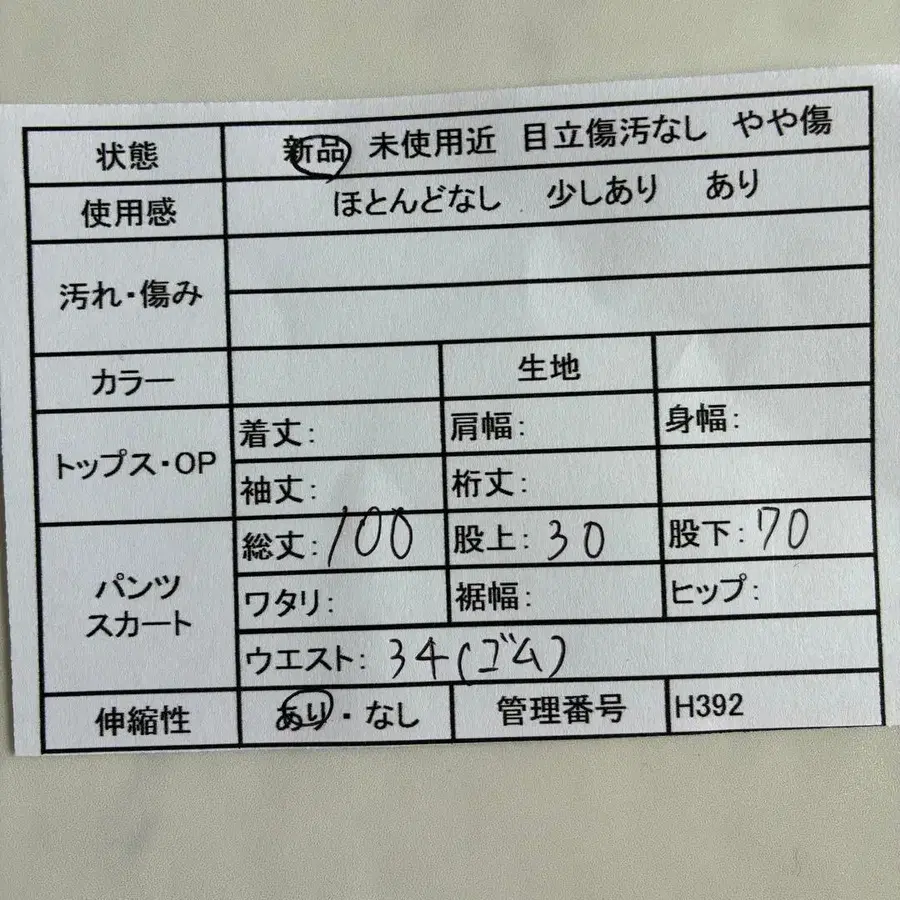 状態 新品 未使用近 目立傷汚なし やや傷
使用感 ほとんどなし 少しあり あり
汚れ・傷み
カラー 生地
トップス・OP 着丈: 肩幅: 身幅:
袖丈: 桁丈:
パンツ スカート 総丈: 100 股上: 30 股下: 70
ワタリ: 裾幅: ヒップ:
ウエスト: 34(ゴム)
伸縮性 あり・なし 管理番号 H392